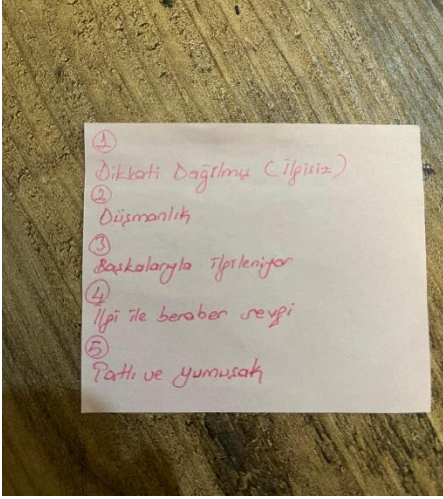 1
Dikkati Dağılmış (İlgisiz)
2
Düşmanlık
3
Başkalarıyla İlgileniyor
4
İlgi ile beraber sevgi
5
Tatlı ve yumuşak